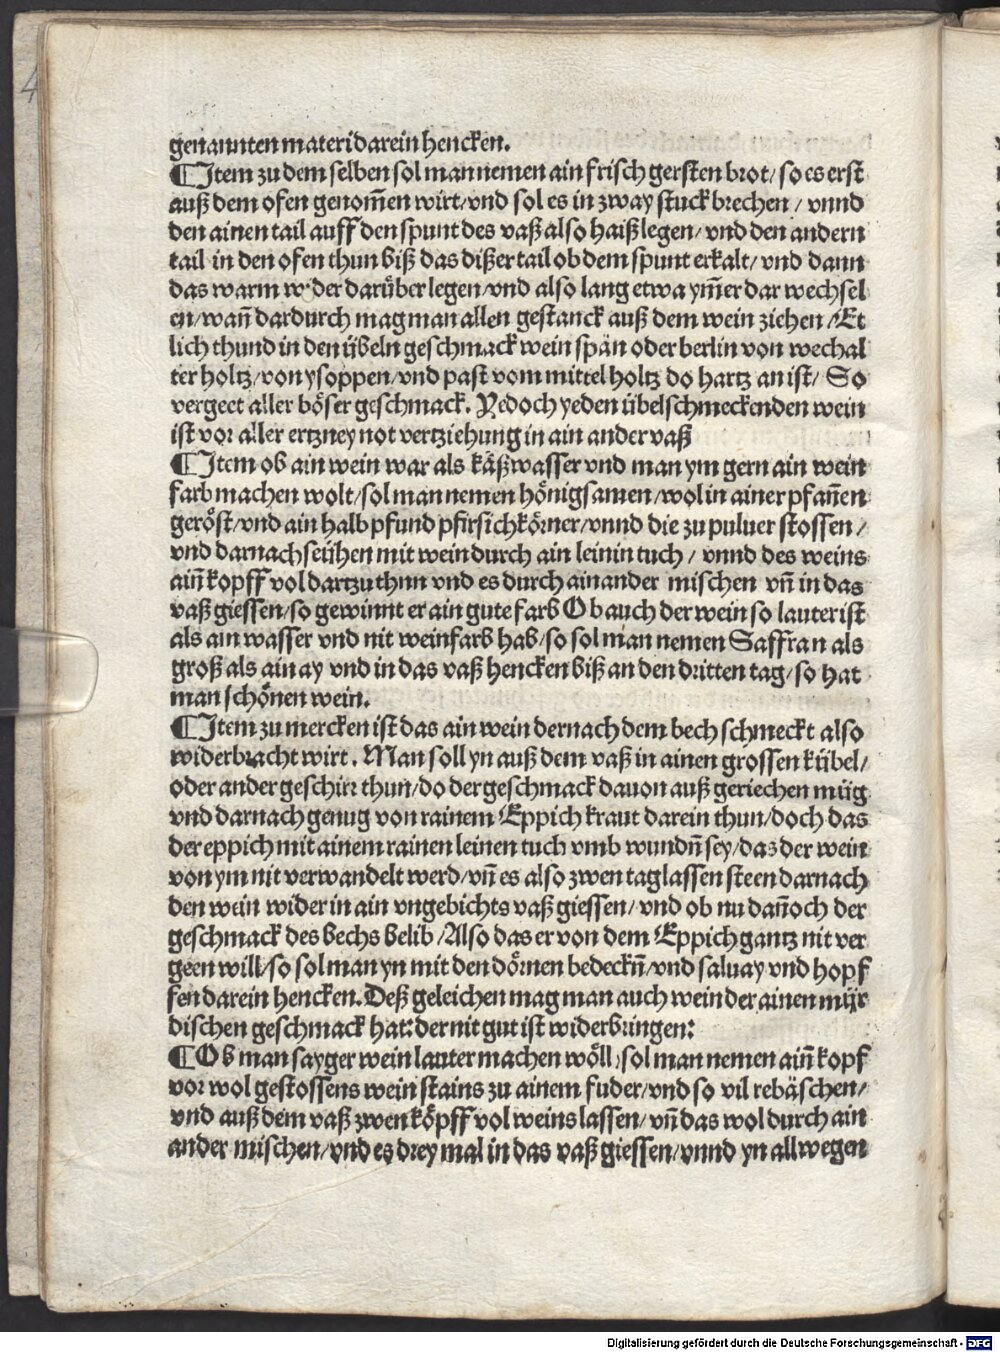 genannten materi darein hencken.
¶Item zu dem selben sol man nemen ain frisch gersten brot/ so es erst
auß dem ofen genom̄en wirt/vnd sol es in zway stuck brechen / vnnd
den ainen tail auff den spunt des vaß also haiß legen/ vnd den andern
tail in den ofen thun biß das dißer tail ob dem spunt erkalt/ vnd dann
das warm wider darüber legen/vnd also lang etwa ym̄er dar wechsel
en/wan̄ dardurch mag man allen gestanck auß dem wein ziehen /Et
lich thund in den übeln geschmack wein spän oder berlin von wechal
ter holtz/von ysoppen/vnd past vom mittel holtz do hartz an ist/ So
vergeet aller böser geschmack. Yedoch yeden übelschmeckenden wein
ist vor aller ertzney not vertziehung in ain ander vaß
¶Item ob ain wein war als käßwasser vnd man ym gern ain wein
farb machen wolt/sol man nemen hönigsamen/wol in ainer pfan̄en
geröst/vnd ain halb pfund pfirsichkörner/vnnd die zu puluer stossen /
vnd darnach seühen mit wein durch ain leinin tuch / vnnd des weins
ain̄ kopff vol dartzu thnn vnd es durch ainander mischen vn̄ in das
vaß giessen/so gewinnt er ain gute farb Ob auch der wein so lauter ist
als ain wasser vnd nit weinfarb hab/so sol man nemen Saffran als
groß als ain ay vnd in das vaß hencken biß an den dritten tag/so hat
man schönen wein.
¶Item zu mercken ist das ain wein der nach dem bech schmeckt also
widerbracht wirt. Man soll yn auß dem vaß in ainen grossen kübel/
oder ander geschirr thun/do der geschmack dauon auß geriechen müg
vnd darnach genug von rainem Eppich kraut darein thun/doch das
der eppich mit ainem rainen leinen tuch vmb wundn̄ sey/das der wein
von ym nit verwandelt werd/vn̄ es also zwen tag lassen steen darnach
den wein wider in ain vngebichts vaß giessen/ vnd ob nu dan̄och der
geschmack des bechs belib /Also das er von dem Eppich gantz nit ver
geen will/so sol man yn mit den dörnen bedeckn̄/vnd saluay vnd hopf
fen darein hencken. Deß geleichen mag man auch wein der ainen mür
dischen geschmack hat: der nit gut ist widerbringen:
¶Ob man sayger wein lauter machen wöll/sol man nemen ain̄ kopf
vor wol gestossens weinstains zu ainem fuder/vnd so vil rebäschen/
vnd auß dem vaß zwen köpff vol weins lassen/ vn̄ das wol durch ain
ander mischen/vnd es drey mal in das vaß giessen/vnnd yn allwegen
4
Digitalisierung gefördert durch die Deutsche Forschungsgemeinschaft - DFG